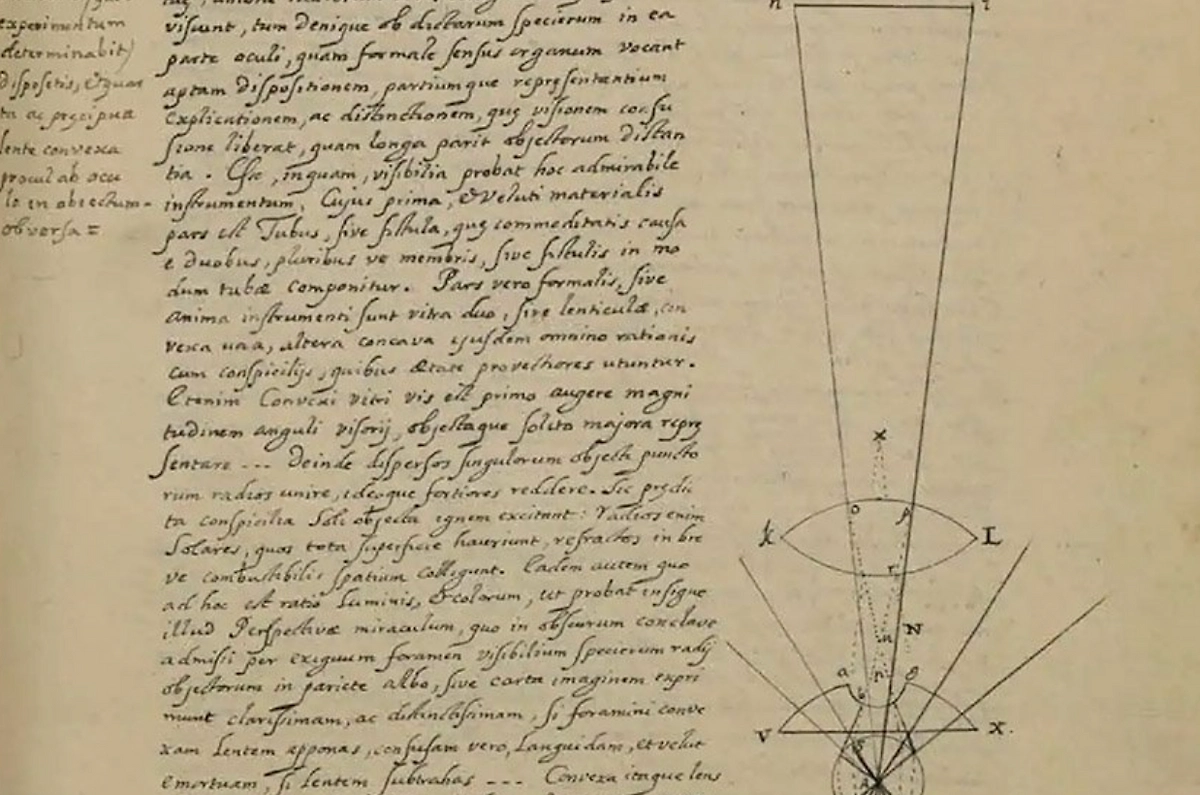 experimentum
determinabit)
dispositis, et quar
ta ac præcipua
lente convexa
procul ab ocu
lo in obiectum-
obversa =
visunt, tum denique ob dictarum specierum in ea
parte oculi, quam formale sensus organum vocant
aptam dispositionem, partiumque repręsentantium
explicationem, ac distinctionem, quę visionem confu
sione liberat, quam longa parit objectorum distan
tia. Hęc, inquam, visibilia probat hoc admirabile
instrumentum, Cujus prima, & veluti materialis
pars est Tubus, sive fistula, quę commoditatis causa
e duobus, pluribus ve membris, sive fistulis in mo
dum tubæ componitur. Pars vero formalis, sive
anima instrumenti sunt vitra duo, sive lenticulæ, con
vexa una, altera concava ejusdem omnino rationis
cum conspicilijs, quibus ætate provectiores utuntur.
Etenim Convexi vitri vis est primo augere magni
tudinem anguli visorij, objectaque solito majora reprę
sentare --- Deinde dispersos singulorum objecti puncto
rum radios unire, ideoque fortiores reddere. Sic prędic
ta conspicilia Soli objecta ignem excitant: radios enim
Solares, quos tota superficie hauriunt, refractos in bre
ve combustibilis spatium colligunt. Eadem autem quo
ad hoc est ratio Luminis, & colorum, ut probat insigne
illud Perspectivæ miraculum, quo in obscurum conclave
admissi per exiguum foramen visibilium specierum radij
objectorum in pariete albo, sive carta imaginem expri
munt clarissimam, ac distinctissimam, si foramini conve
xam Lentem apponas, confusam vero, Languidam, et velut
emortuam, si Lentem subtrahas --- Convexa itaque lens
h i
x
o p
k L
r
N
n
a g
V X.